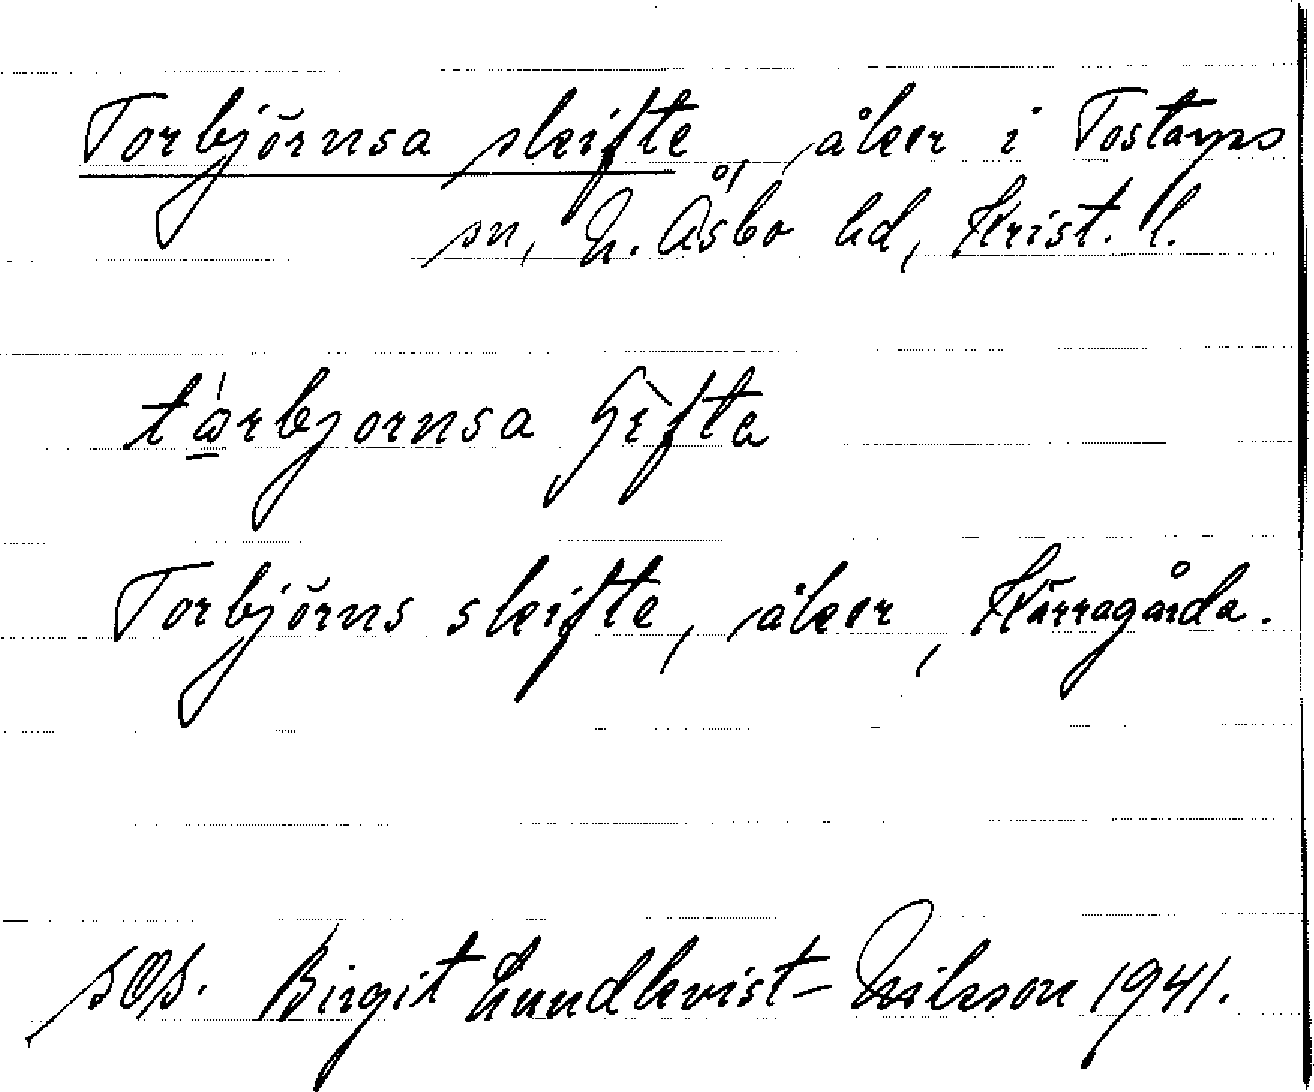 Torbjörnsa skifte, åker i Tostarps
sn, N. Åsbo hd, Krist. l.
tårbjornsa
Torbjörns skifte, åker, Kärragårda.
Birgit Lundkvist-Nilsson 1941.